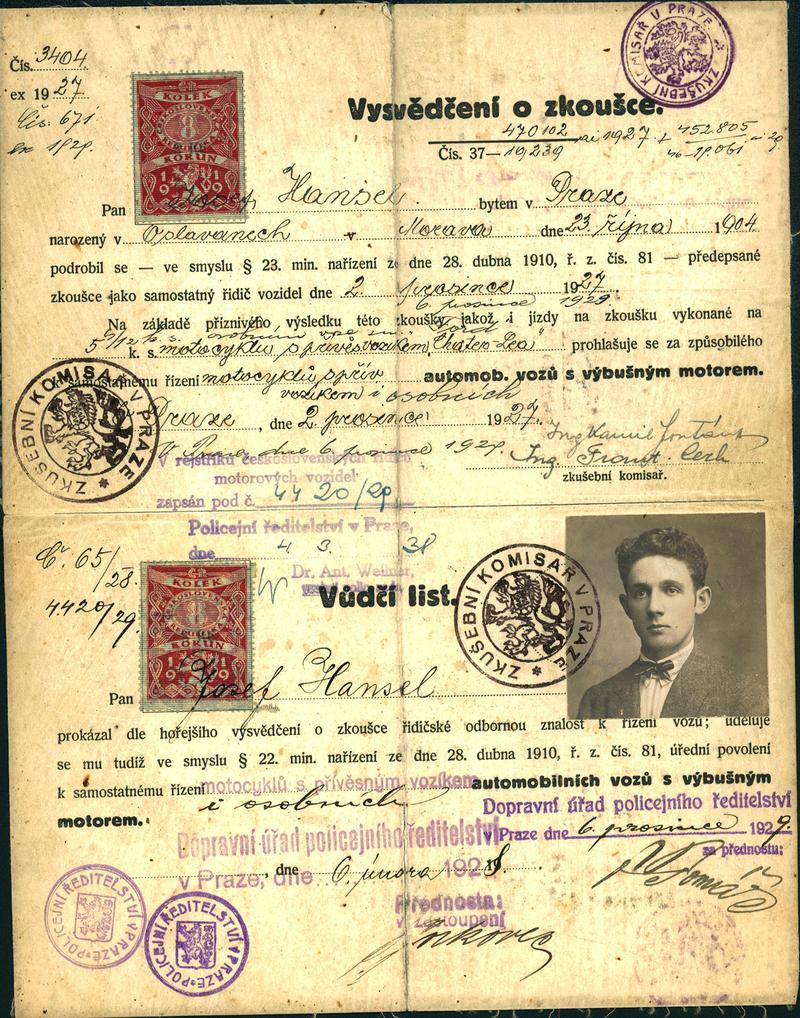 Čís. 3404
ex 1927
čís. 671
ex 1929
ZKUŠEBNÍ KOMISAŘ V PRAZE
KOLEK
8
KORUN
1919
Vysvědčení o zkoušce.
470102 ai 1927 + 452.805
Čís. 37—19,239
Pan Josef Hansel bytem v Praze
narozený v Oslavanech v Morava dne 23. října 1904
podrobil se — ve smyslu § 23. min. nařízení ze dne 28. dubna 1910, ř. z. čís. 81 — předepsané
zkoušce jako samostatný řidič vozidel dne 2. prosince 1927
6. prosince 1929
Na základě příznivého výsledku této zkoušky jakož i jízdy na zkoušku vykonané na
5 9/12 k. s. osobním Ford
k. s. motocyklu s přívěs. vozíkem „Chater-Lea" prohlašuje se za způsobilého
k samostatnému řízení motocyklů s přív. automob. vozů s výbušným motorem.
vozíkem i osobních
V Praze, dne 2. prosince 1927.
V Praze dne 6. prosince 1929.
Ing. Kamil
Ing. Frant. Cech
zkušební komisař.
ZKUŠEBNÍ KOMISAŘ V PRAZE
V rejstříku československých řidičů
motorových vozidel
zapsán pod č. 4420/29
Policejní ředitelství v Praze,
dne 4 3. 38
Dr. Ant. Weilner,
Č. 65/28.
4420/29.
KOLEK
8
KORUN
1919
Vůdčí list.
ZKUŠEBNÍ KOMISAŘ V PRAZE
Pan Josef Hansel
prokázal dle hořejšího vysvědčení o zkoušce řidičské odbornou znalost k řízení vozů; uděluje
se mu tudíž ve smyslu § 22. min. nařízení ze dne 28. dubna 1910, ř. z. čís. 81, úřední povolení
k samostatnému řízení motocyklů s přívěsným vozíkem automobilních vozů s výbušným
i osobních
motorem.
Dopravní úřad policejního ředitelství
v Praze dne 6. prosince 1929.
za přednostu:
Dopravní úřad policejního ředitelství
v Praze, dne 6. února 1928
Přednosta:
v zastoupení
POLICEJNÍ ŘEDITELSTVÍ V PRAZE
POLICEJNÍ ŘEDITELSTVÍ V PRAZE